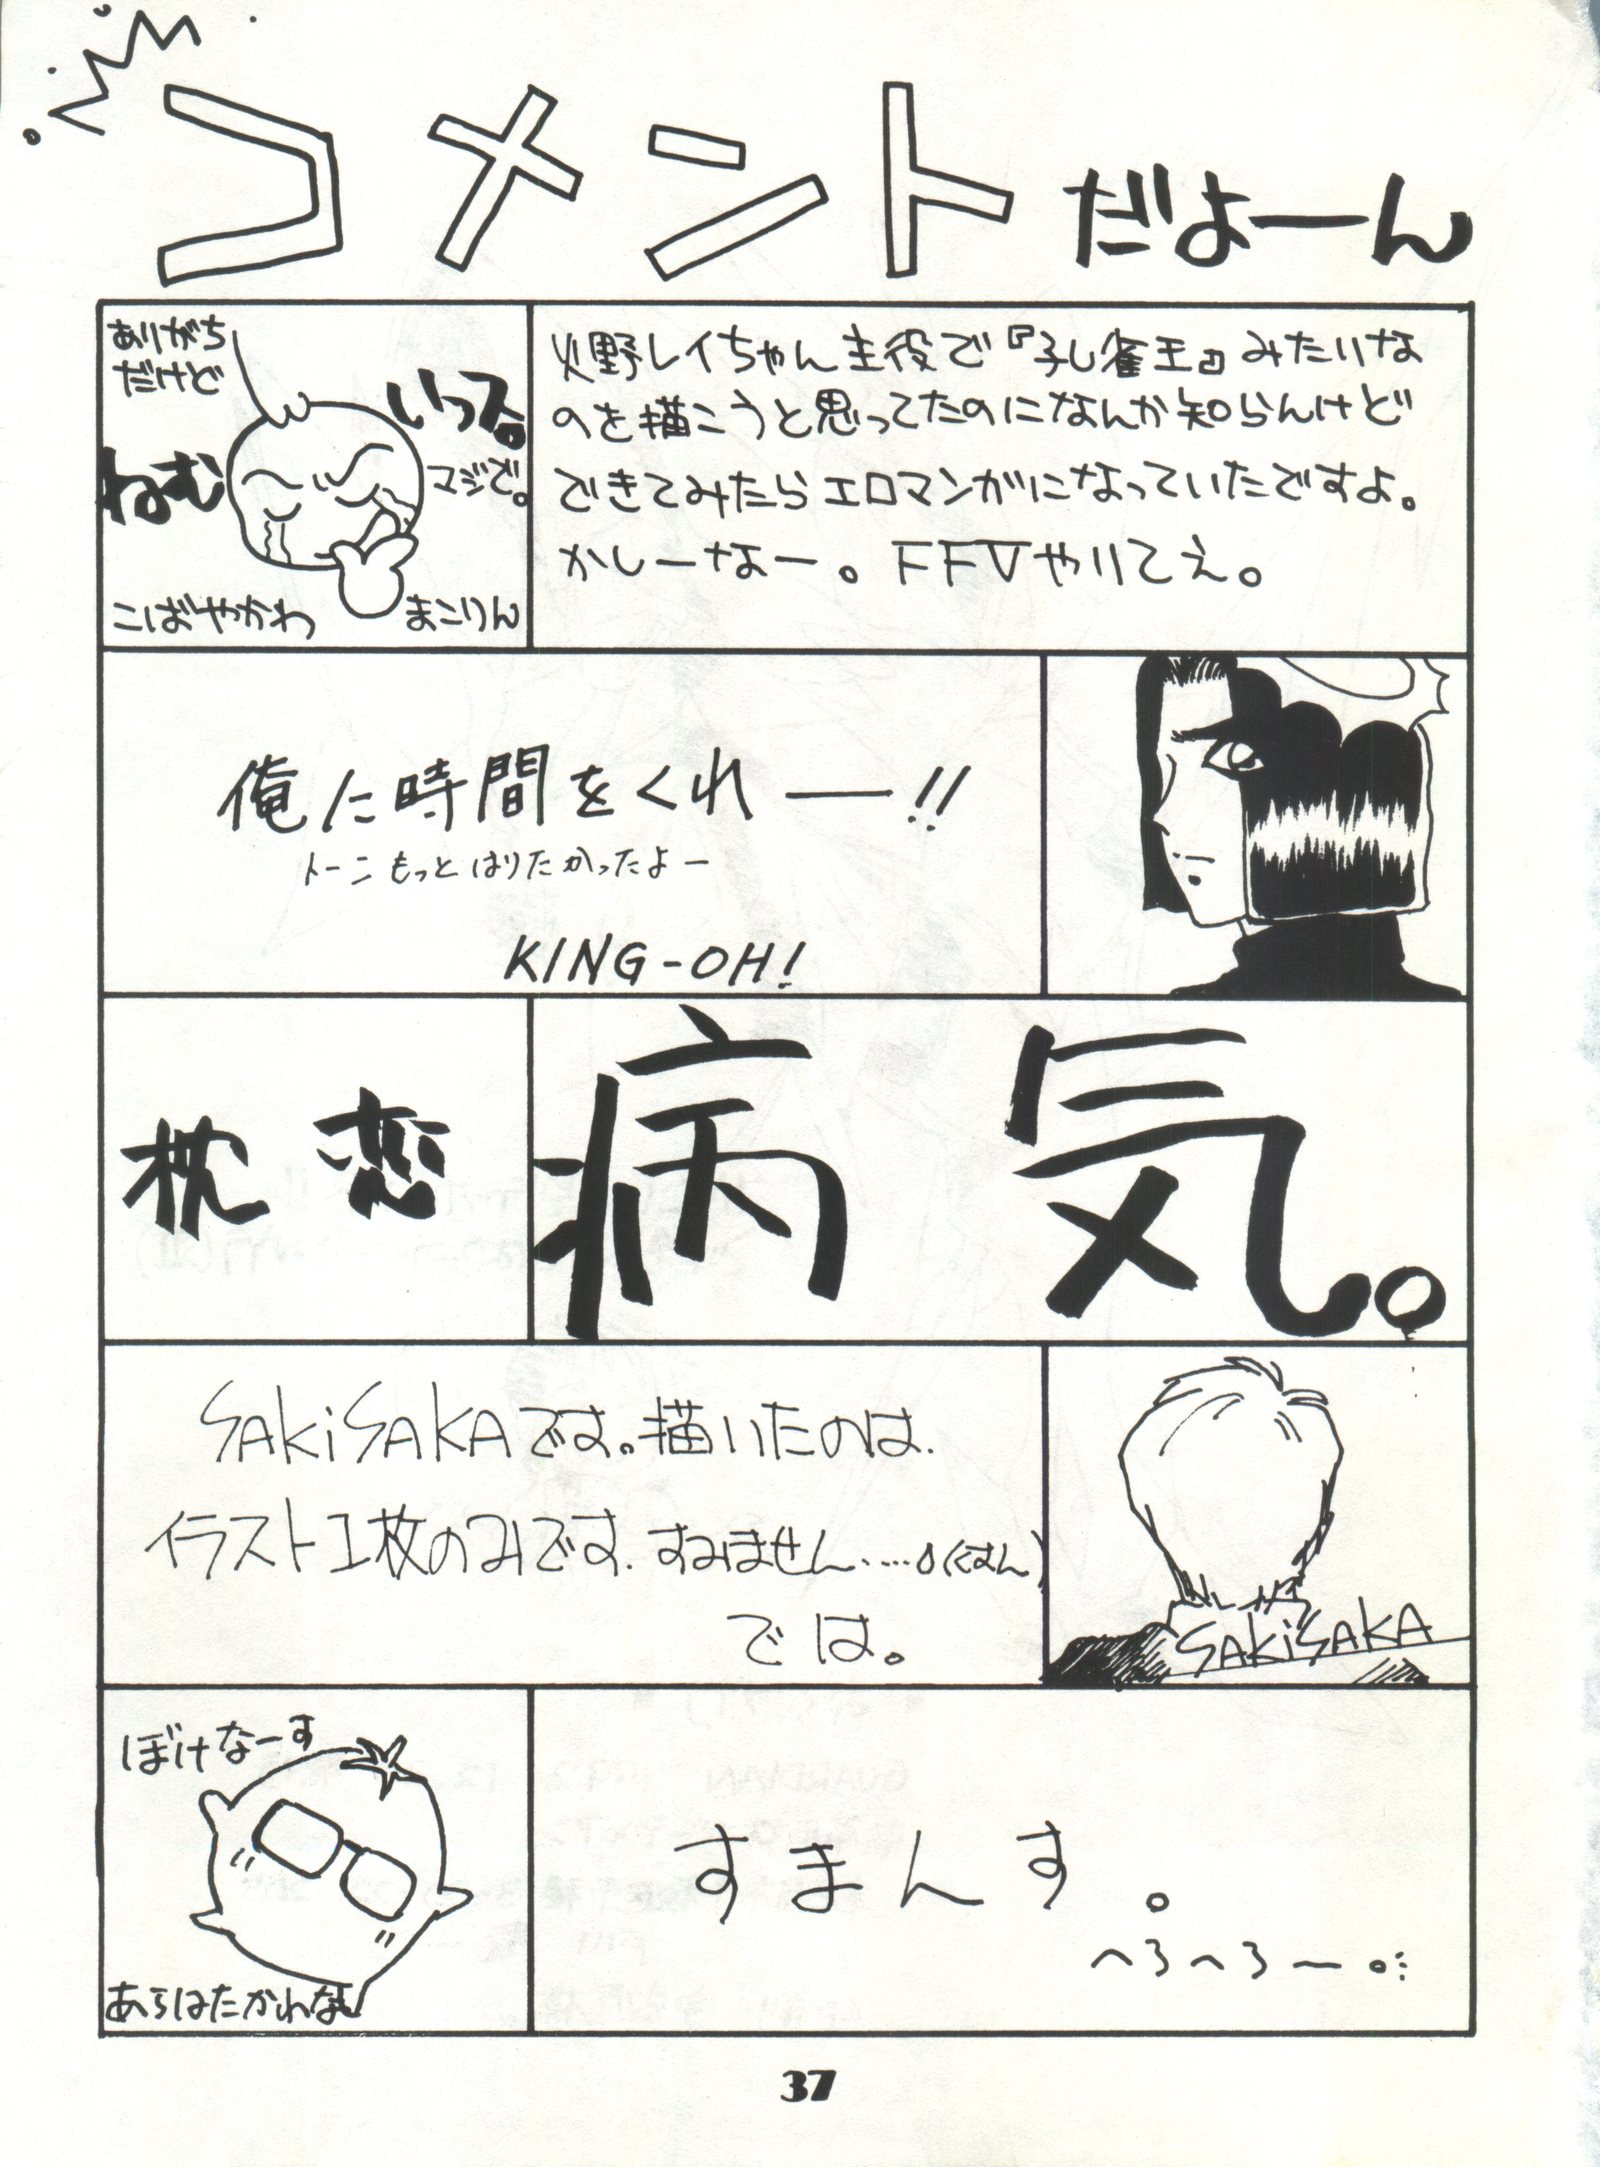 コメントだよーん
ありがち
だけど
ねむ
いっス。
マジで。
こばやかわ まこりん
火野レイちゃん主役で『孔雀王』みたいな
のを描こうと思ってたのになんか知らんけど
できてみたらエロマンガになっていたですよ。
かしーなー。FFVやりてえ。
俺に時間をくれ――!!
トーンもっとはりたかったよー
KING-OH!
枕 恋
病気。
SAKiSAKAです。描いたのは.
イラスト1枚のみです.すみません.....(ぐすん)
では。
SAKiSAKA
ぼけなーす
あらはたかれな
すまんす。
へろへろー
37